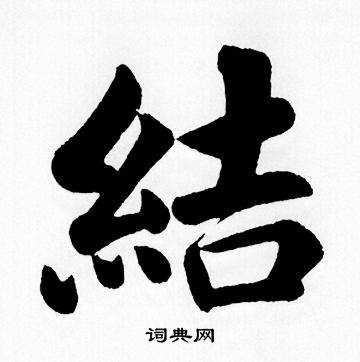 結
词典网